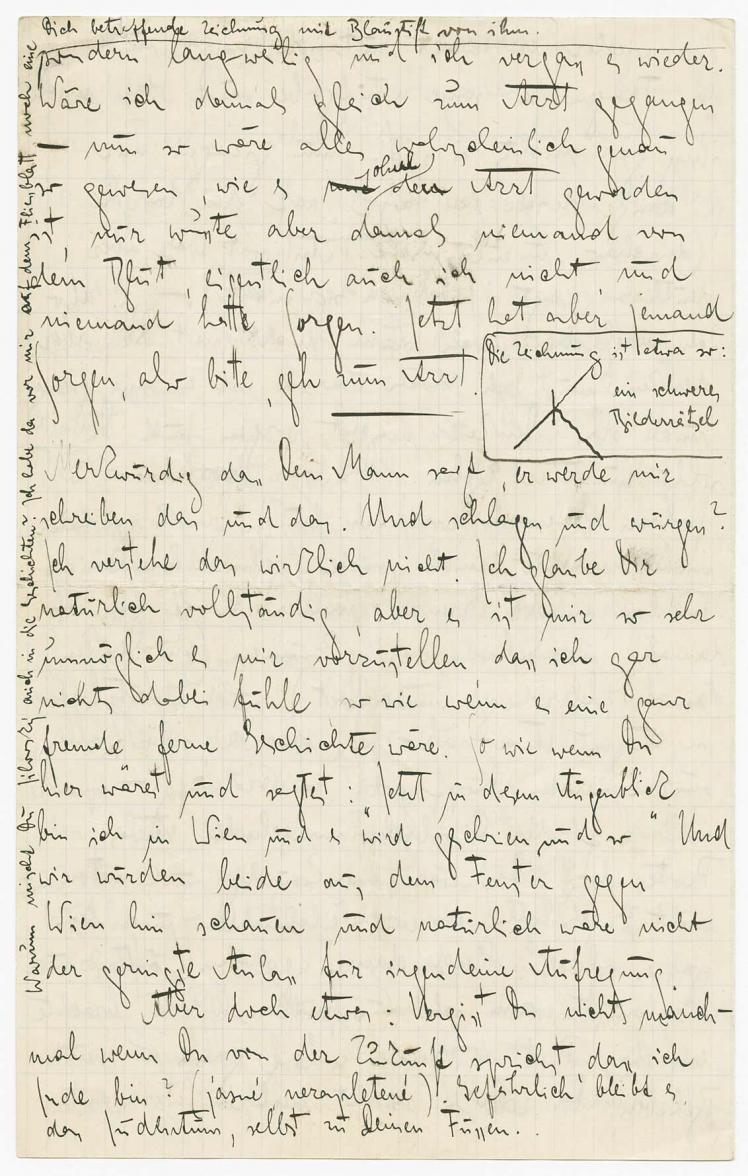 Warum mischt Du Jilovsky auch in die Geschichten? Ich habe da vor mir auf dem Fließblatt noch eine
Dich betreffende Zeichnung mit Blaustift von ihm.
sondern langweilig und ich vergaß es wieder.
Wäre ich damals gleich zum Arzt gegangen
– nun so wäre alles wahrscheinlich genau
so gewesen, wie es ohne den Arzt geworden
ist, nur wußte aber damals niemand von
dem Blut, eigentlich auch ich nicht, und
niemand hatte Sorgen. Jetzt hat aber jemand
Sorgen, also bitte, geh zum Arzt.
Die Zeichnung ist etwa so:
ein schweres
Bilderrätsel
Merkwürdig daß Dein Mann sagt, er werde mir
schreiben das und das. Und schlagen und würgen?
Ich verstehe das wirklich nicht. Ich glaube Dir
natürlich vollständig, aber es ist mir so sehr
unmöglich es mir vorzustellen daß ich gar
nichts dabei fühle so wie wenn es eine ganz
fremde ferne Geschichte wäre. So wie wenn Du
hier wärest und sagtest: „Jetzt in diesem Augenblick
bin ich in Wien und es wird geschrien und so" Und
wir würden beide aus dem Fenster gegen
Wien hin schauen und natürlich wäre nicht
der geringste Anlaß für irgendeine Aufregung.
Aber doch etwas: Vergißt Du nicht manch-
mal wenn Du von der Zukunft sprichst, daß ich
Jude bin? (jasné, nezapletené). Gefährlich bleibt es,
das Judentum, selbst zu Deinen Füßen.